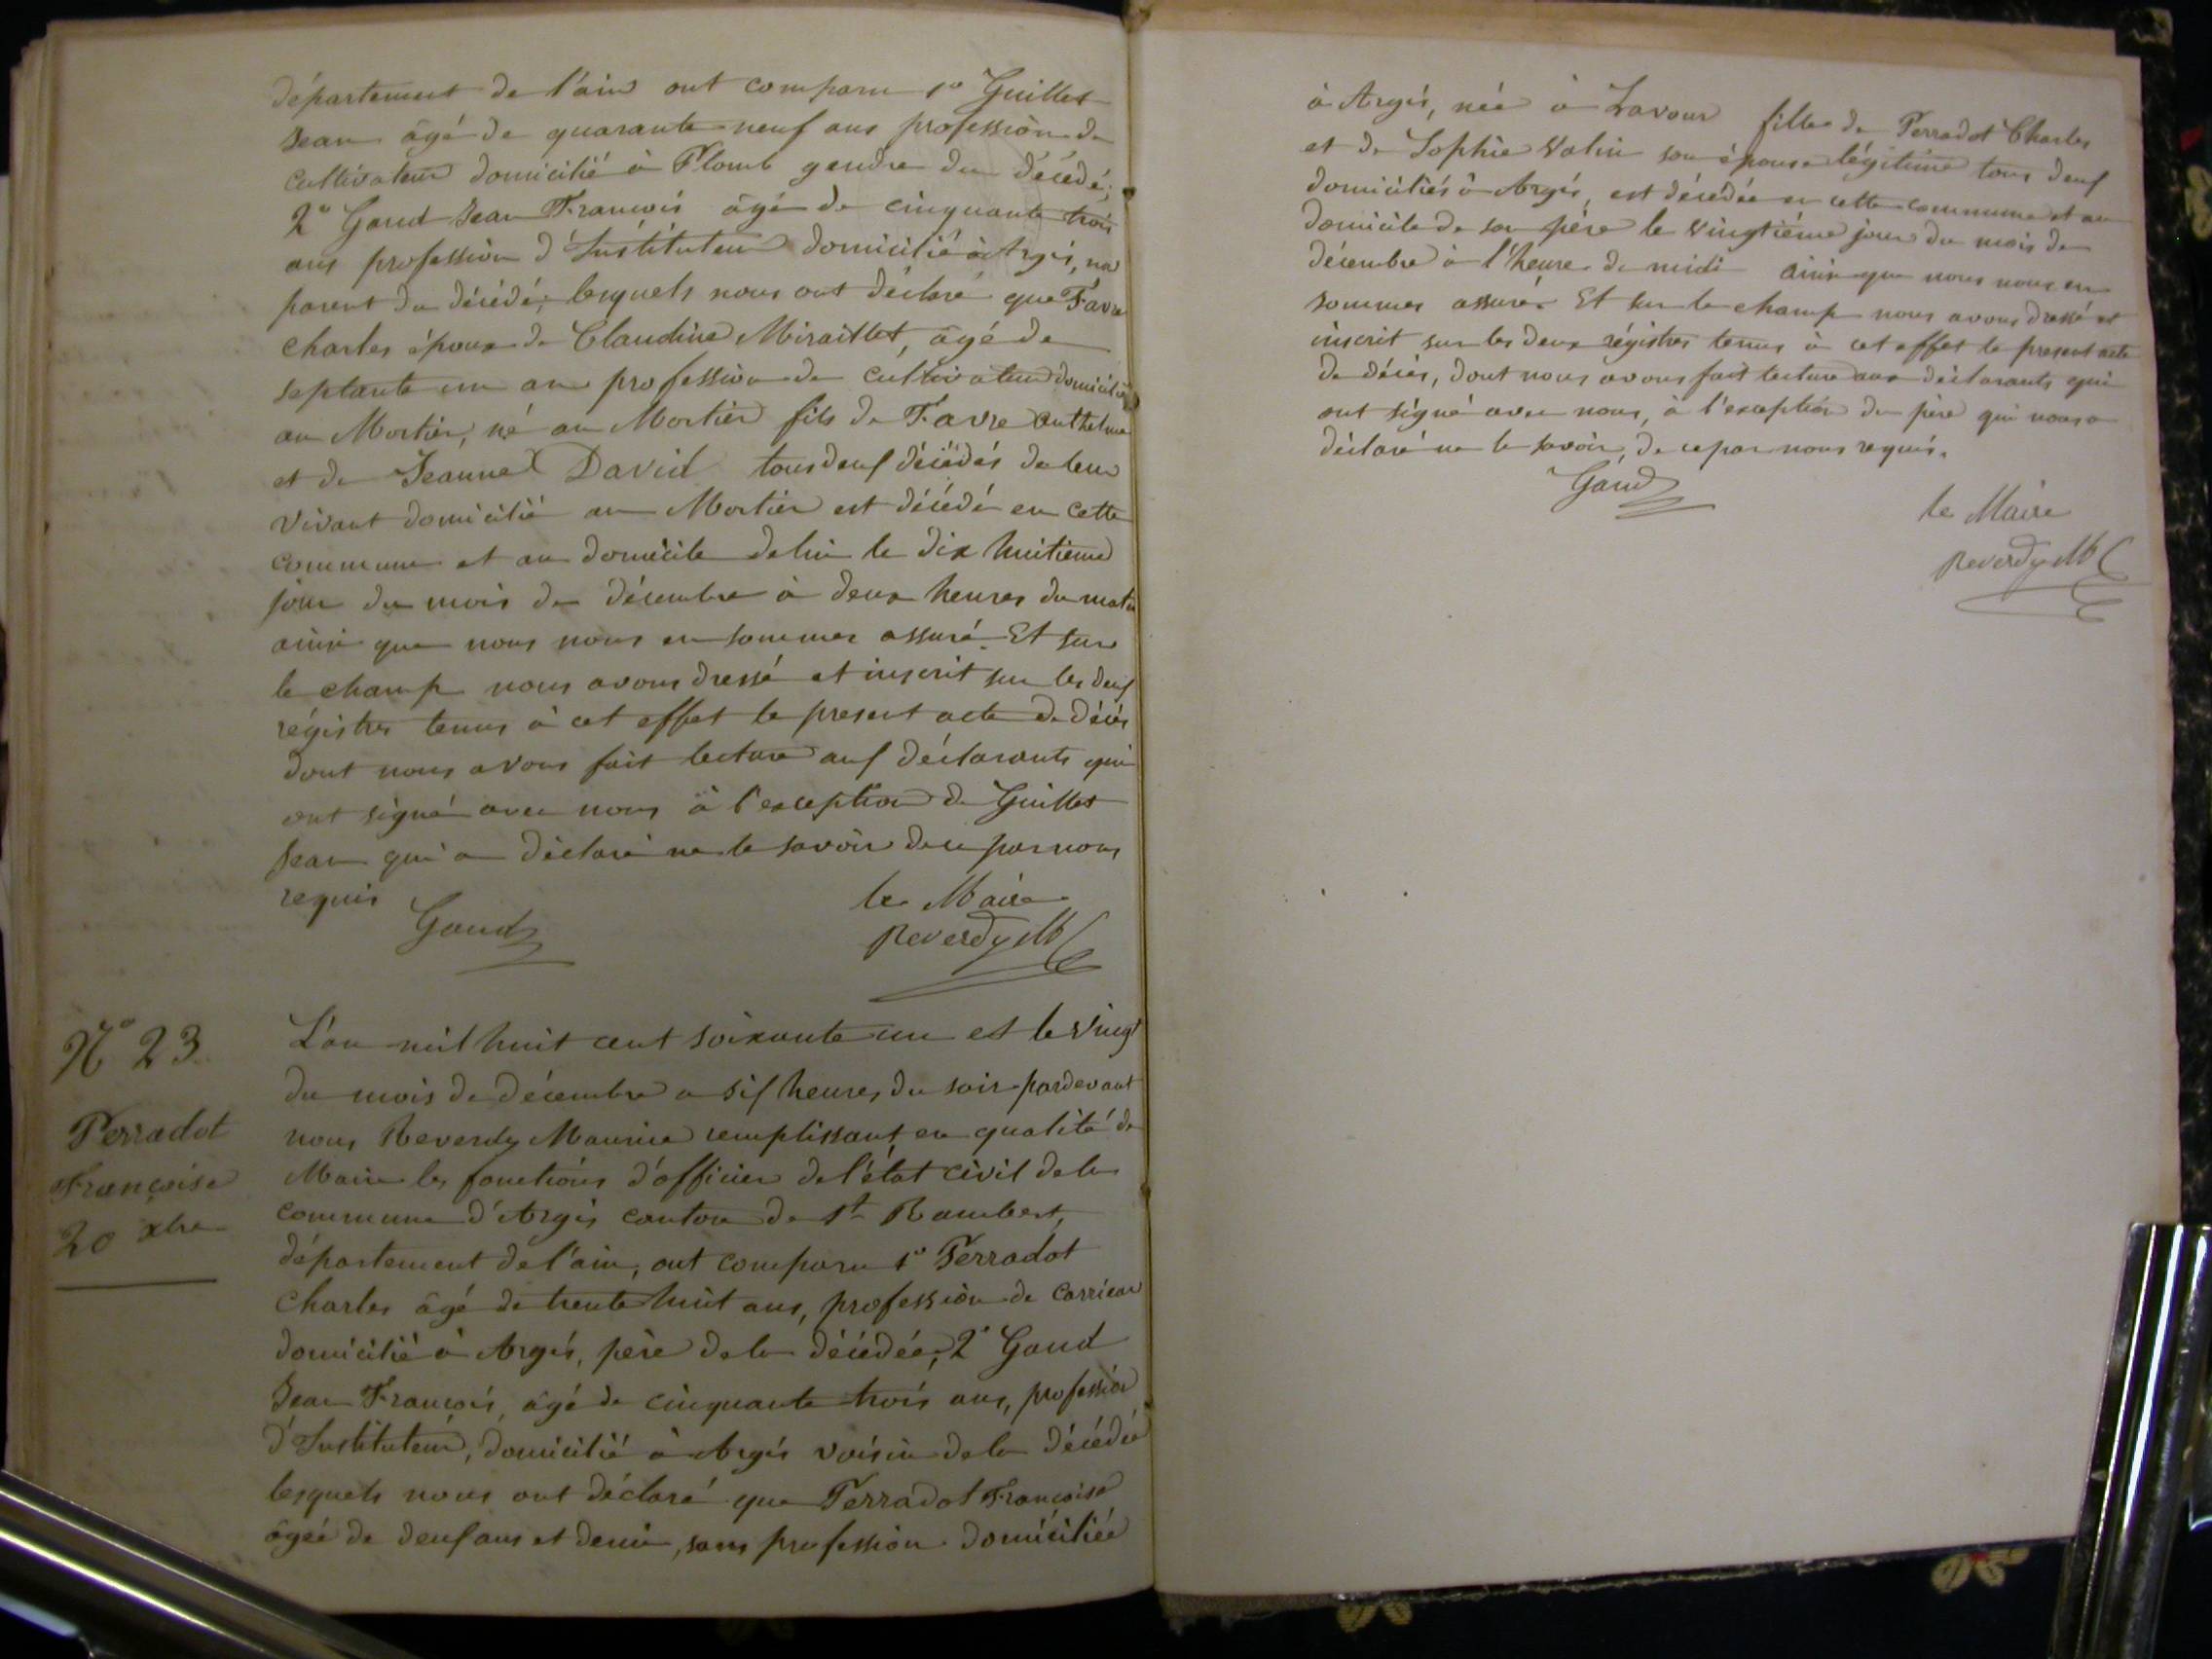 département de l'ain ont comparu 1° Guillet
Jean âgé de quarante neuf ans profession de
cultivateur domicilié à Plomb gendre du décédé;
2° Gaud Jean François âgé de cinquante trois
ans profession d'Instituteur domicilié à Argis, non
parent du décédé; lesquels nous ont déclaré que Favre
Charles époux de Claudine Miraillet, âgé de
septante un an profession de cultivateur domicilié
au Mortier, né au Mortier fils de Favre Anthelme
et de Jeanne David tous deux décédés de leur
vivant domicilié au Mortier est décédé en cette
commune et au domicile de lui le dix huitième
jour du mois de décembre à deux heures du matin
ainsi que nous nous en sommes assuré. Et sur
le champ nous avons dressé et inscrit sur les deux
régistres tenus à cet effet le present acte de décès
dont nous avons fait lecture aux déclarants qui
ont signé avec nous à l'exception de Guillet
Jean qui a déclaré ne le savoir de ce par nous
requis
Gaud
le Maire
Reverdy M
N° 23
Perradot
Françoise
20 xbre
L'an mil huit cent soixante un et le vingt
du mois de décembre a six heures du soir pardevant
nous Reverdy Maurice remplissant en qualité de
Maire les fonctions d'officier de l'état civil de la
commune d'Argis canton de St Rambert,
département de l'ain, ont comparu 1° Perradot
Charles âgé de trente huit ans, profession de carrieur
domicilié à Argis, père de la décédée; 2° Gaud
Jean François, âgé de cinquante trois ans, profession
d'Instituteur, domicilié à Argis voisin de la décédée
lesquels nous ont déclaré que Perradot Françoise
âgée de deux ans et demi, sans profession domiciliée
à Argis, née à Lavour fille de Perradot Charles
et de Sophie Valin son épouse légitime tous deux
domiciliés à Argis, est décédée en cette commune et au
domicile de son père le vingtième jour du mois de
décembre à l'heure de midi ainsi que nous nous en
sommes assuré. Et sur le champ nous avons dressé et
inscrit sur les deux régistres tenus à cet effet le present acte
de décès, dont nous avons fait lecture aux déclarants qui
ont signé avec nous, à l'exception du père qui nous a
déclaré ne le savoir, de ce par nous requis.
Gaud
le Maire
Reverdy M